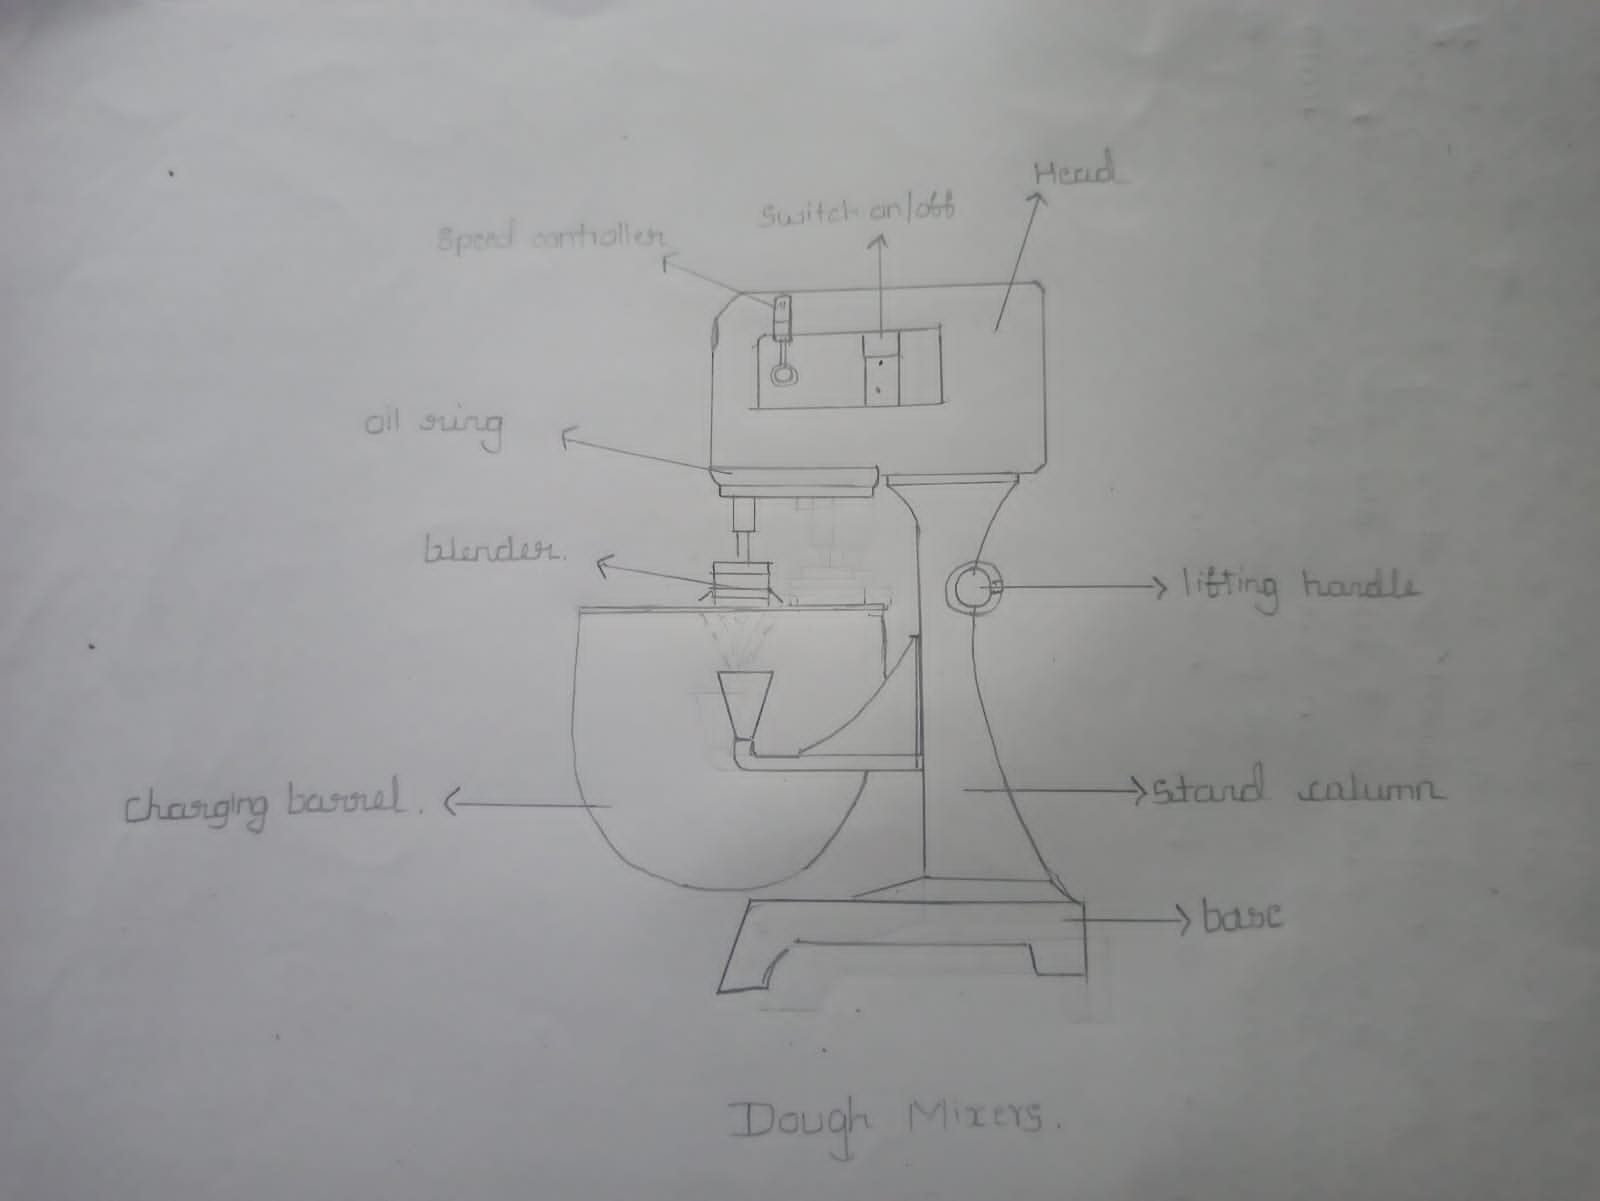 Head
Switch on/off
Speed controller
oil ring
blender.
lifting handle
charging barrel.
stand column
base
Dough Mixers.